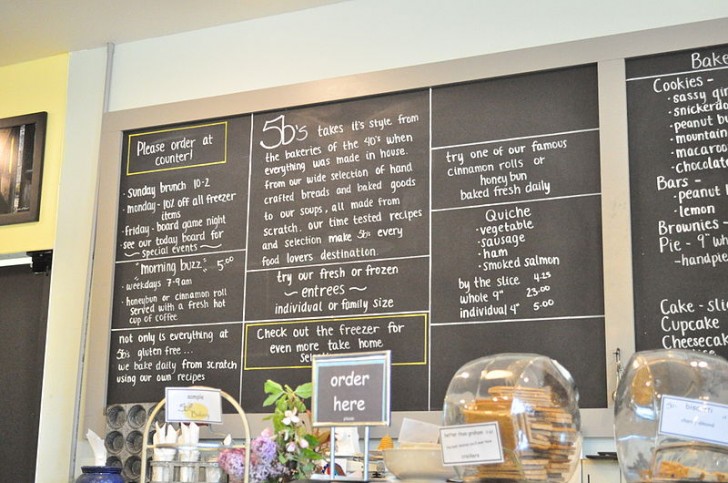 Please order at
counter!
· Sunday brunch 10-2
· monday - 10% off all freezer
items
· Friday - board game night
· see our today board for
~ special events ~
"morning buzz" 5.00
· weekdays 7-9am
· honeybun or cinnamon roll
served with a fresh hot
cup of coffee
not only is everything at
5b's gluten free...
we bake daily from scratch
using our own recipes
5b's takes it's style from
the bakeries of the 40's when
everything was made in house.
from our wide selection of hand
crafted breads and baked goods
to our soups, all made from
scratch. our time tested recipes
and selection make 5b's every
food lovers destination
try our fresh or frozen
~ entrees ~
individual or family size
Check out the freezer for
even more take home
try one of our famous
cinnamon rolls or
honey bun
baked fresh daily
Quiche
· vegetable
· sausage
· ham
· smoked salmon
by the slice 4.25
whole 9" 23.00
individual 4" 5.00
Cookies -
· sassy
· peanut
Bars -
· peanut
· lemon
Brownies -
Pie - 9"
- handpie
Cake -
Cupcake
order
here
simple